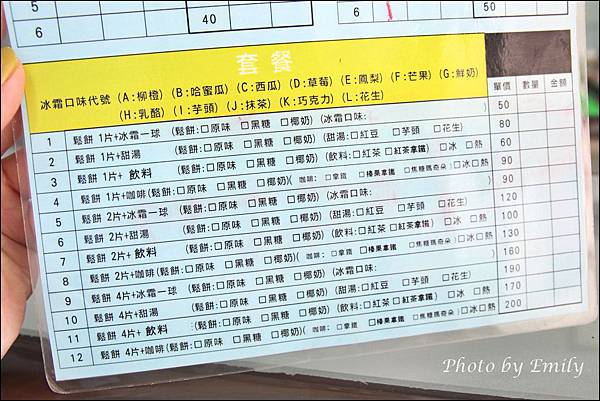 5
6 40 6
套餐
冰霜口味代號 (A:柳橙) (B:哈蜜瓜) (C:西瓜) (D:草莓) (E:鳳梨) (F:芒果) (G:鮮奶)
(H:乳酪) (I:芋頭) (J:抹茶) (K:巧克力) (L:花生) 單價 數量 金額
1 鬆餅 1片+冰霜一球 (鬆餅:□原味 □黑糖 □椰奶) (冰霜口味: 50
2 鬆餅 1片+甜湯 (鬆餅:□原味 □黑糖 □椰奶) (甜湯:□紅豆 □芋頭 □花生) 80
3 鬆餅 1片+ 飲料 (鬆餅:□原味 □黑糖 □椰奶) (飲料:□紅茶 □紅茶拿鐵) □冰 □熱 60
4 鬆餅 1片+咖啡(鬆餅:□原味 □黑糖 □椰奶)( 咖啡: □拿鐵 □榛果拿鐵 □焦糖瑪奇朵)□冰□熱 90
5 鬆餅 2片+冰霜一球 (鬆餅:□原味 □黑糖 □椰奶) (冰霜口味: 90
6 鬆餅 2片+甜湯 (鬆餅:□原味 □黑糖 □椰奶) (甜湯:□紅豆 □芋頭 □花生) 120
7 鬆餅 2片+ 飲料 (鬆餅:□原味 □黑糖 □椰奶) (飲料:□紅茶 □紅茶拿鐵) □冰 □熱 100
8 鬆餅 2片+咖啡(鬆餅:□原味 □黑糖 □椰奶)( 咖啡: □拿鐵 □榛果拿鐵 □焦糖瑪奇朵)□冰□熱 130
9 鬆餅 4片+冰霜一球 (鬆餅:□原味 □黑糖 □椰奶) (冰霜口味: 160
10 鬆餅 4片+甜湯 (鬆餅:□原味 □黑糖 □椰奶) (甜湯:□紅豆 □芋頭 □花生) 190
11 鬆餅 4片+ 飲料 (鬆餅:□原味 □黑糖 □椰奶) (飲料:□紅茶 □紅茶拿鐵) □冰 □熱 170
12 鬆餅 4片+咖啡(鬆餅:□原味 □黑糖 □椰奶)( 咖啡: □拿鐵 □榛果拿鐵 □焦糖瑪奇朵)□冰□熱 200
Photo by Emily